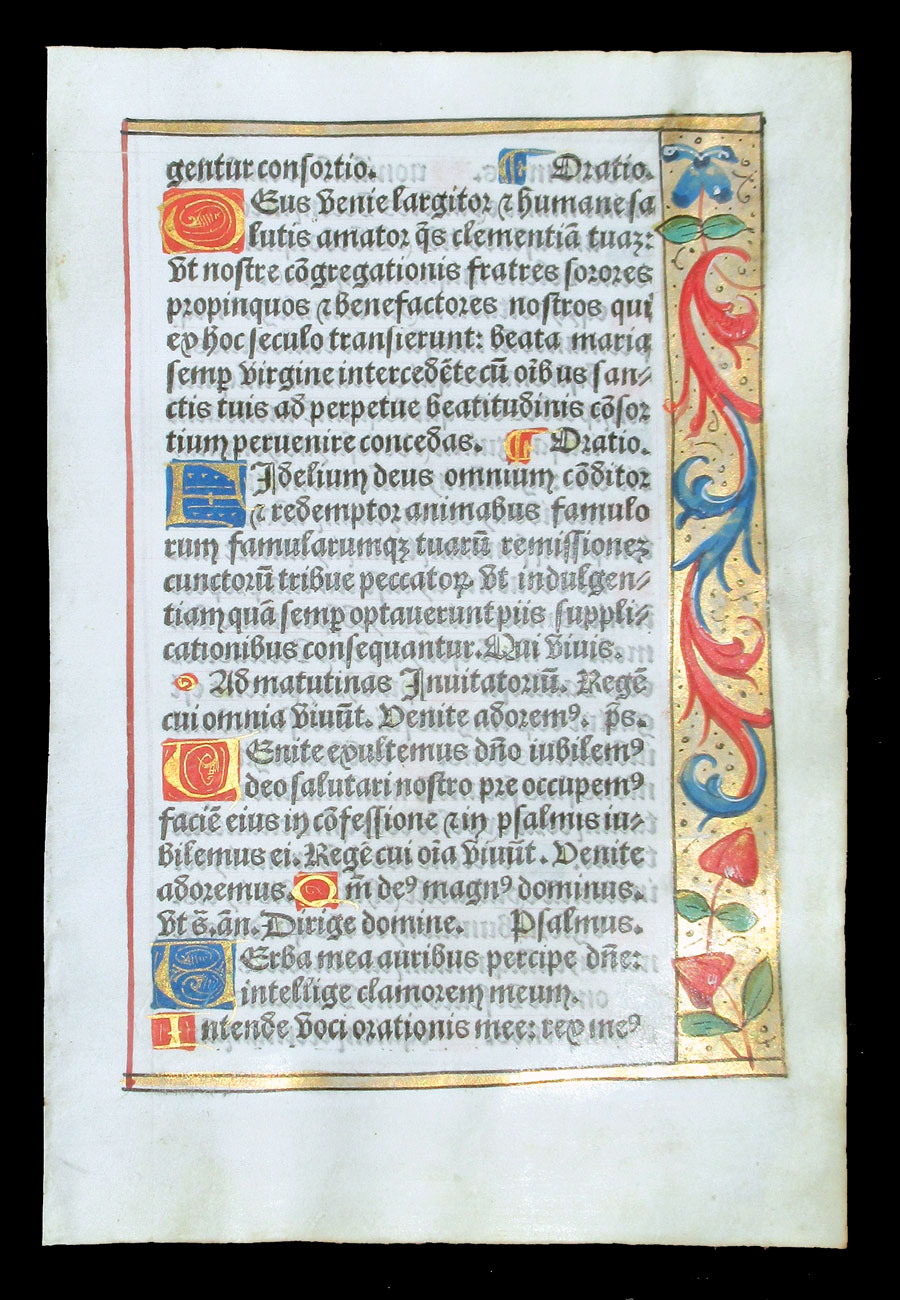 gentur consortio. Oratio.
DEus venie largitor ⁊ humane sa
lutis amator q̄s clementiā tuaꝫ:
vt nostre cōgregationis fratres sorores
propinquos ⁊ benefactores nostros qui
ex hoc seculo transierunt: beata maria
semꝑ virgine intercedēte cū oībus san⸗
ctis tuis ad perpetue beatitudinis cōsor
tium peruenire concedas. Oratio.
FIdelium deus omnium cōditor
⁊ redemptor animabus famulo
rum famularumqꝫ tuarū remissioneꝫ
cunctorū tribue peccatoꝝ. vt indulgen⸗
tiam quā semꝑ optauerunt piis suppli⸗
cationibus consequantur. Qui viuis.
Ad matutinas Inuitatoriū. Regē
cui omnia viuūt. Venite adoremꝰ. ps̄.
VEnite exultemus dn̄o iubilemꝰ
deo salutari nostro pre occupemꝰ
faciē eius in cōfessione ⁊ in psalmis iu⸗
bilemus ei. Regē cui oīa viuūt. Venite
adoremus. Qm̄ deꝰ magnꝰ dominus.
vt s̄. an̄. Dirige domine. Psalmus.
VErba mea auribus percipe dn̄e:
intellige clamorem meum.
Intende voci orationis mee: rex meꝰ